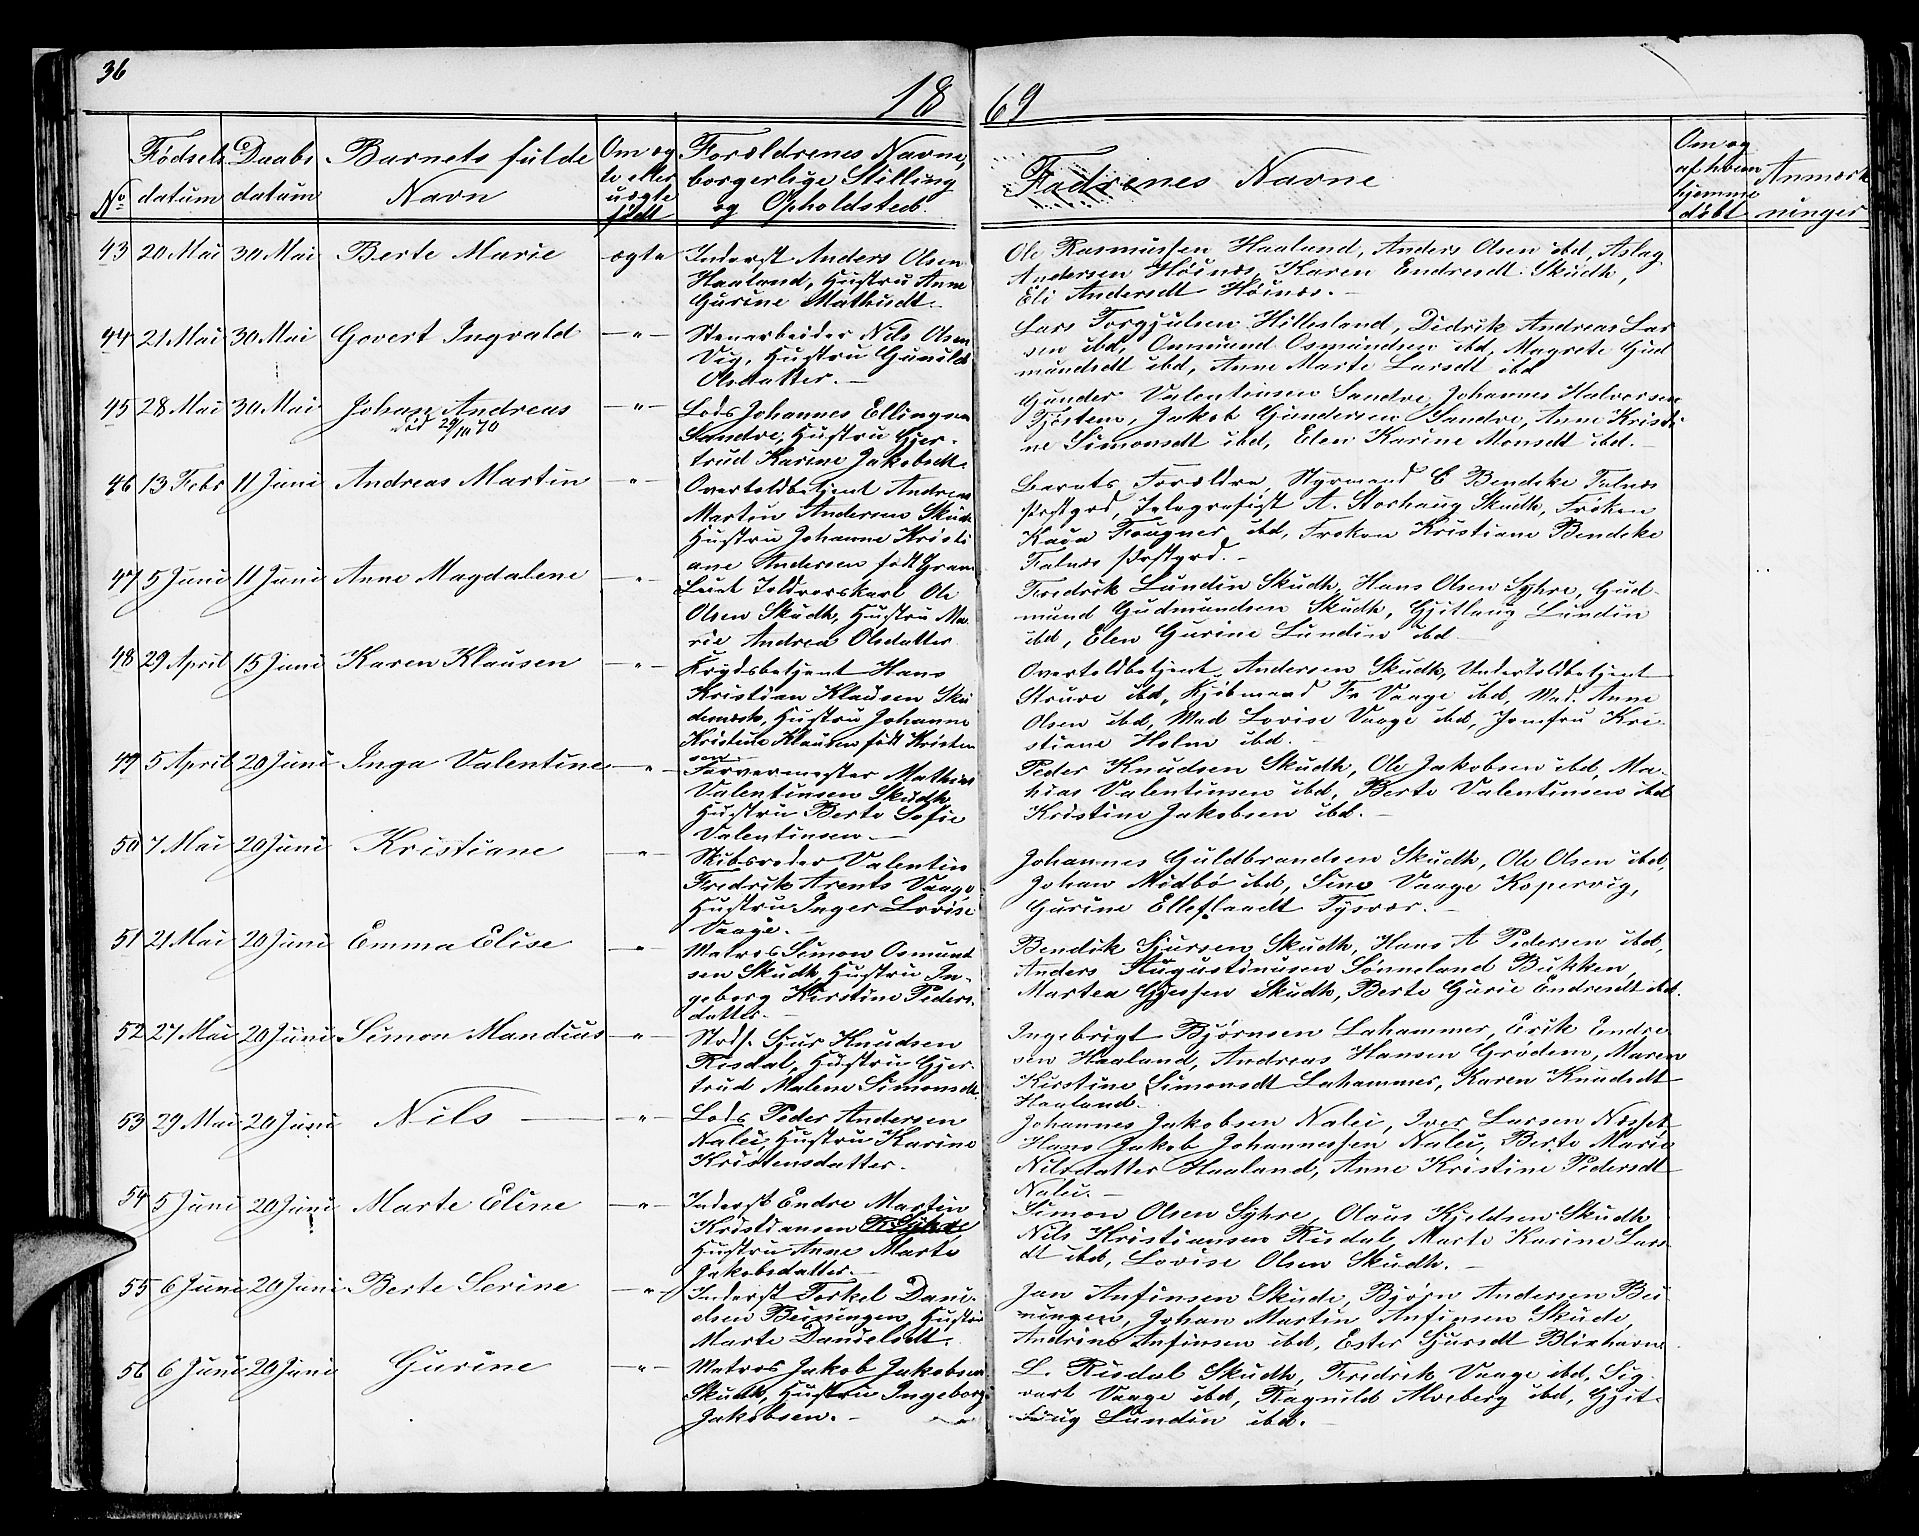 36
18 69
No
Fødsels
datum
Daabs
datum
Barnets fulde
Navn
Om æg
te eller
uægte
født
Forældrenes Navne,
borgerlige Stilling
og Opholdsted.
Faddrenes Navne
Om og
af hvem
hjemme
døbt
Anmærk
ninger
43 20 Mai 30 Mai Berte Marie ægte
Inderst Anders Olsen
Haaland, Hustru Anne
Gurine Mathisdt.
Ole Rasmussen Haaland, Anders Olsen ibd, Aslag
Andersen Høinæs, Karen Endresdt. Skudh,
Eli Andersdt Høinæs.
44 21 Mai 30 Mai Govert Ingvald —"—
Stenarbeider Nils Olsen
Vig, Hustru Gunild
Olsdatter. —
Lars Torgjulsen Hillesland, Didrik Andreas Lar
sen ibd, Ommund Osmundsen ibd, Magrete Gud
mundsdt ibd, Anne Marte Larsdt ibd
45 28 Mai 30 Mai Johan Andreas —"—
død 29/10 70
Lods Johannes Ellingsen
Sandve, Hustru Gjer-
trud Karine Jakobsdt.
Gunder Valentinsen Sandve, Johannes Halvorsen
Tjøsten, Jakob Gundersen Sandve, Anne Kristi
ne Simonsdt ibd, Elen Karine Monsdt ibd. —
46 13 Febr 11 Juni Andreas Martin —"—
Overtoldbetjent Andreas
Martin Andersen Skudh
Hustru Johanne Kristi
ane Andersen født Gram
Barnets Forældre, Styrmand C Bendeke Falnæs
Præstgrd, Telegrafist A. Storhaug Skudh, Frøken
Kaja Fougner ibd, Frøken Kristiane Bendeke
Falnæs Præstgrd. —
47 5 Juni 11 Juni Anne Magdalene —"—
Const Toldroerskarl Ole
Olsen Skudh, Hustru Ma
rie Andrea Olsdatter
Fredrik Lundin Skudh, Hans Olsen Syhre, Gud-
mund Gudmundsen Skudh, Gjitlaug Lundin
ibd, Elen Gurine Lundin ibd
48 29 April 15 Juni Karen Klausen —"—
Krydsbetjent Hans
Kristian Klausen Sku
denæsh, Hustru Johanne
Kristine Klausen født Kristen
sen
Overtoldbetjent Andersen Skudh, Undertoldbetjent
Struve ibd, Kjøbmand Fr Vaage ibd, Mad. Anne
Olsen ibd, Mad Lovise Vaage ibd, Jomfru Kri-
stiane Holm ibd.
49 5 April 20 Juni Inga Valentine —"—
Farvermester Mathias
Valentinsen Skudh,
Hustru Berte Sofie
Valentinsen. —
Peder Knudsen Skudh, Ole Jakobsen ibd, Ma-
thias Valentinsen ibd, Berte Valentinsen ibd
Kristine Jakobsen ibd. —
50 7 Mai 20 Juni Kristiane —"—
Skibsreder Valentin
Fredrik Arents Vaage
Hustru Inger Lovise
Vaage. —
Johannes Guldbrandsen Skudh, Ole Olsen ibd,
Johan Midbø ibd, Sine Vaage Kopervig,
Gurine Elleflaadt Tysvær. —
51 21 Mai 20 Juni Emma Elise "
Matros Simon Osmund
sen Skudh, Hustru In-
geborg Kirstine Peders
datter. —
Bendik Sjursen Skudh, Hans A Pedersen ibd,
Anders Augustinusen Sønneland Bukken,
Martea Gjessen Skudh, Berte Gurie Endresdt ibd.
52 27 Mai 20 Juni Simon Mandius —"—
Strdf. Sjur Knudsen
Risdal, Hustru Gjer-
trud Malene Simonsdt.
Ingebrigt Bjørnsen Lahammer, Erik Endre
sen Haaland, Andreas Hansen Grødem, Maren
Kirstine Simonsdt Lahammer, Karen Knudsdt
Haaland.
53 29 Mai 20 Juni Nils —"—
Lods Peder Andersen
Nalei, Hustru Karine
Kristensdatter.
Johannes Jakobsen Nalei, Iver Larsen Næsset
Hans Jakob Johannessen Nalei, Berte Marie
Nilsdatter Haaland, Anne Kristine Pedersdt
Nalei. —
54 5 Juni 20 Juni Marte Eline —"—
Inderst Endre Martin
Kristiansen Syhre
Hustru Anne Marte
Jakobsdatter. —
Simon Olsen Syhre, Olaus Kjeldsen Skudh
Nils Kristiansen Risdal, Marte Karine Lars
dt ibd, Lovise Olsen Skudh. —
55 6 Juni 20 Juni Berte Serine —"—
Inderst Torkel Dani-
elsen Beiningen, Hustru
Marte Danielsdt.
Jan Anfinsen Skude, Bjørn Andersen Bei
ningen, Johan Martin Anfinsen Skude,
Andrine Anfinsen ibd, Ester Sjursdt Blixhavn.
56 6 Juni 20 Juni Gurine —"—
Matros Jakob Jakobsen
Skudh, Hustru Ingeborg
Jakobsen. —
L. Risdal Skudh, Fredrik Vaage ibd, Sig-
vart Vaage ibd, Ragnild Alveberg ibd, Gjit-
laug Lundin ibd.